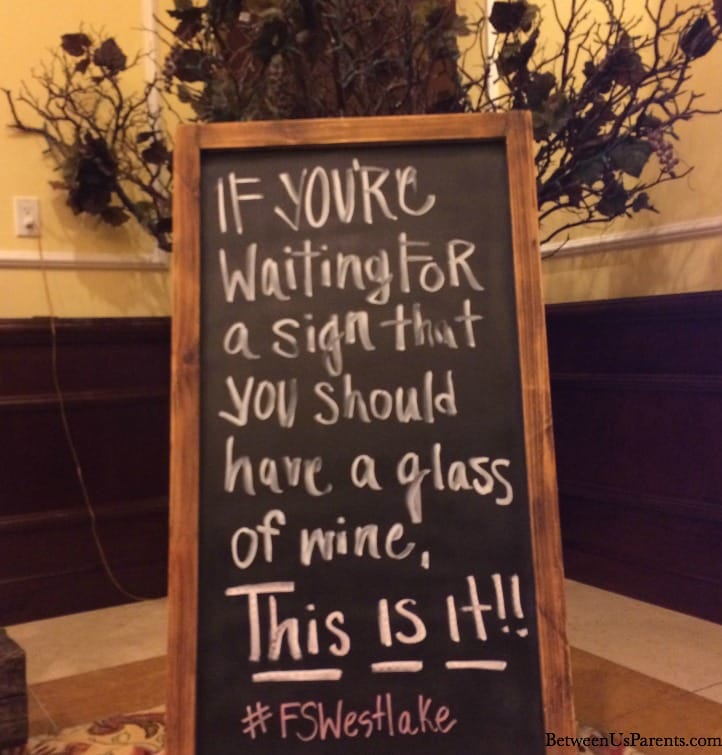 IF YOU'RE
Waiting FOR
a sign that
you should
have a glass
of wine,
This is it!!
#FSWestlake
BetweenUsParents.com